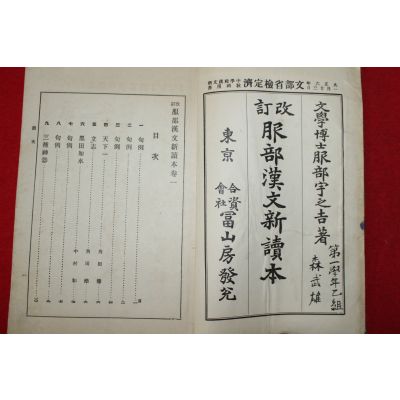 文部省檢定濟
文學博士服部宇之吉著
改訂
服部漢文新讀本
東京
合資會社
冨山房發兌
第一學年乙組
森武雄
改訂
服部漢文新讀本卷一
目次
一 句例
二 句例
三 句例
四 天下一
五 立志
六 黒田如水
七 句例
八 句例
九 三種神器
目次